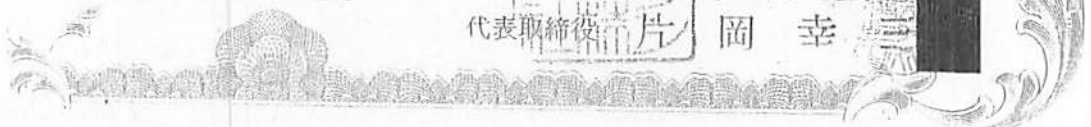 代表取締役 片岡幸三